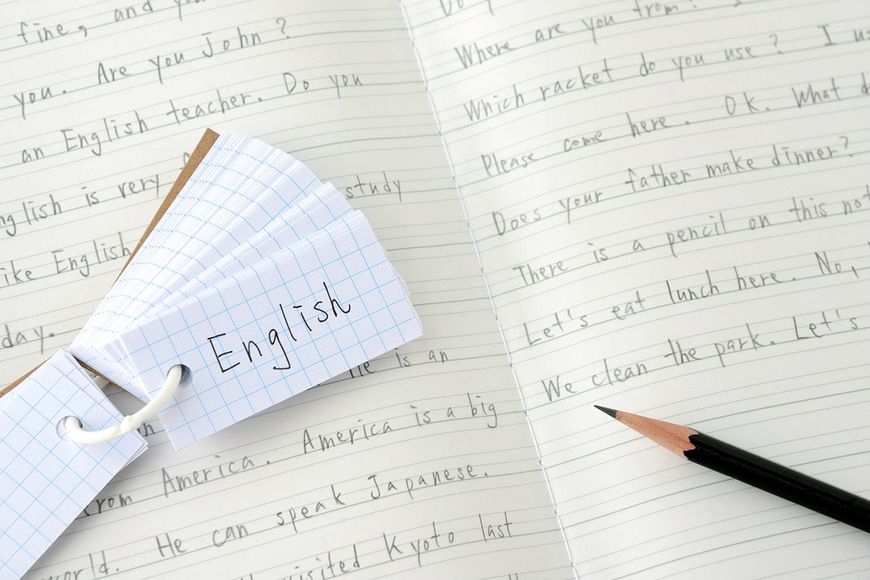 fine, and
you. Are you John?
you. Do you
an English teacher.
English is very
study
like English
day.
English
He is an
from America. America is a big
world. He can speak Japanese.
visited Kyoto last
Do
Where are you from? I
Which racket do you use? I us
Please come here. OK. What d
Does your father make dinner?
There is a pencil on this not
Let's eat lunch here. No,
We clean the park. Let's